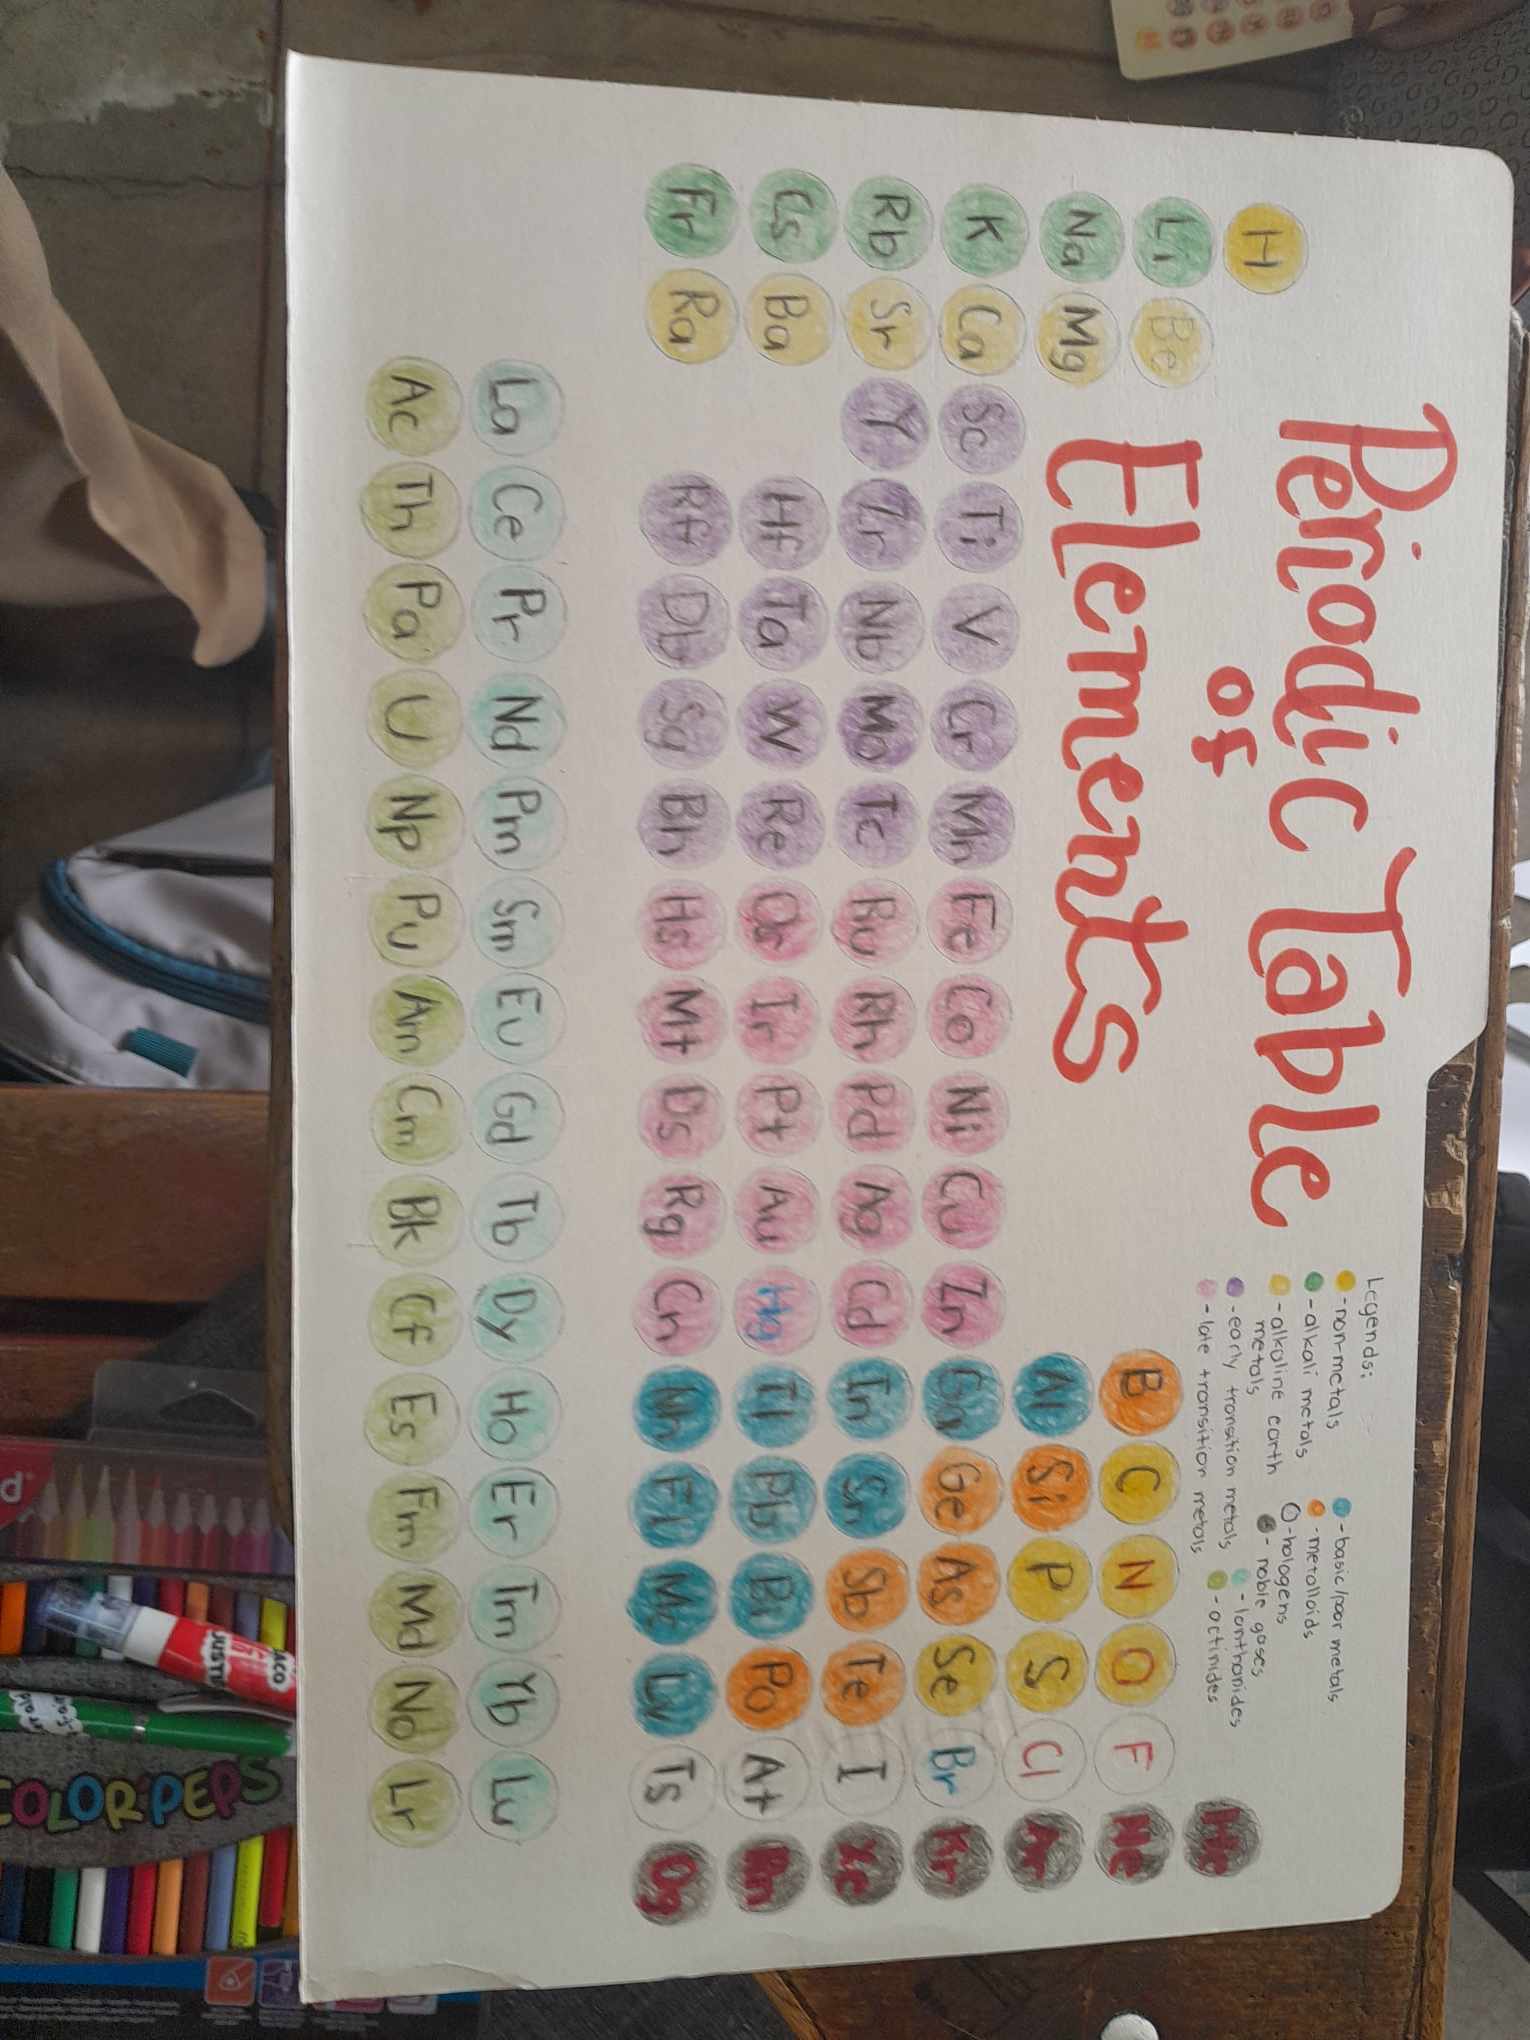 Periodic Table
of
Elements
Legends:
-non-metals
-alkali metals
-alkaline earth
metals
-early transition metals
-late transition metals
-basic/poor metals
-metalloids
-halogens
- noble gases
- lanthanides
- actinides
H He
Li Be B C N O F Ne
Na Mg Al Si P S Cl Ar
K Ca Sc Ti V Cr Mn Fe Co Ni Cu Zn Ga Ge As Se Br Kr
Rb Sr Y Zr Nb Mo Tc Ru Rh Pd Ag Cd In Sn Sb Te I Xe
Cs Ba Hf Ta W Re Os Ir Pt Au Hg Tl Pb Bi Po At Rn
Fr Ra Rf Db Sg Bh Hs Mt Ds Rg Cn Nh Fl Mc Lv Ts Og
La Ce Pr Nd Pm Sm Eu Gd Tb Dy Ho Er Tm Yb Lu
Ac Th Pa U Np Pu Am Cm Bk Cf Es Fm Md No Lr